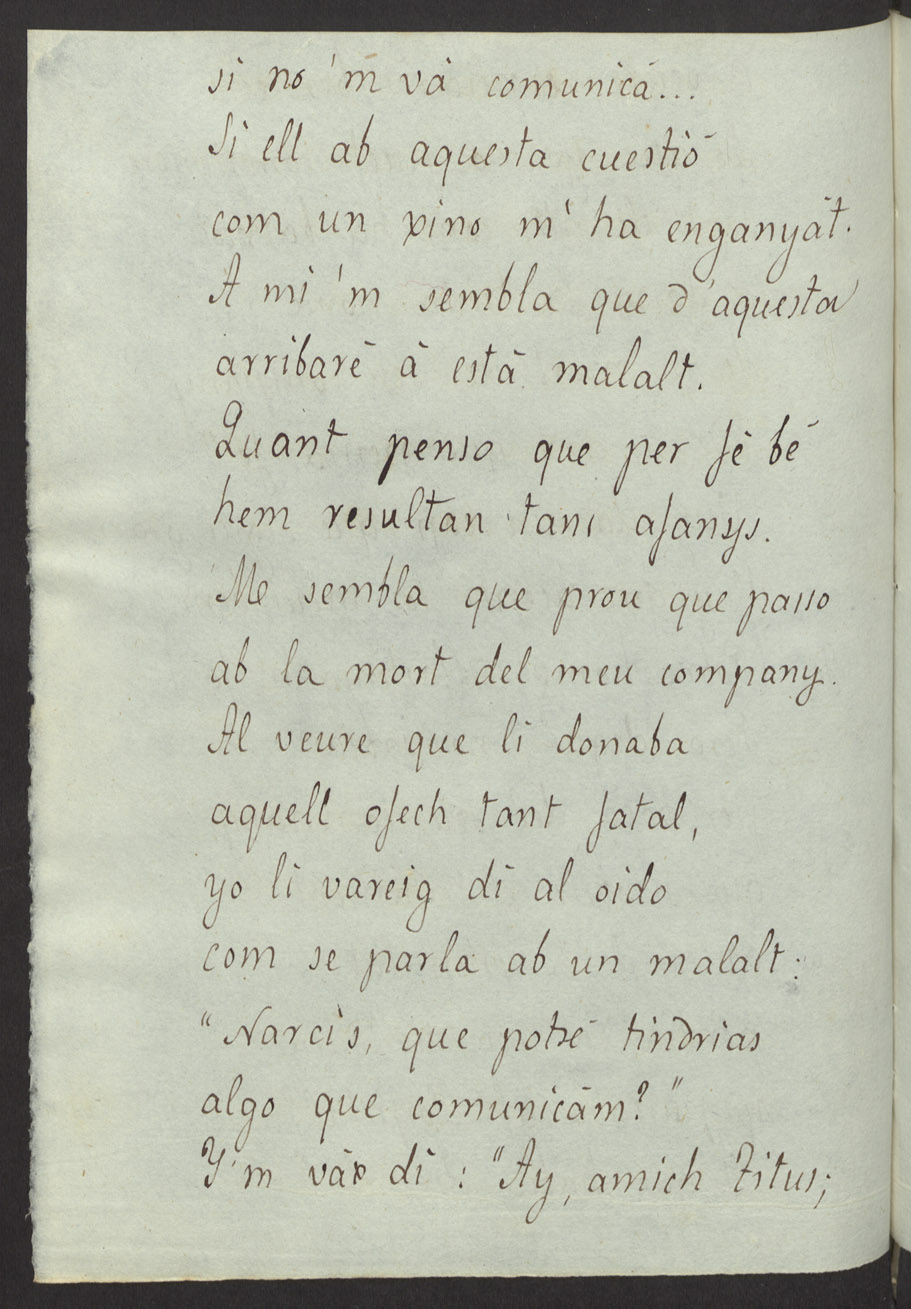 si no 'm và comunicá...
Si ell ab aquesta cuestió
com un xino m' ha enganyát.
A mi 'm sembla que d'aquesta
arribaré á está malalt.
Quant penso que per fé bé
hem resultan tans afanys.
Me sembla que prou que passo
ab la mort del meu company.
Al veure que li donaba
aquell ofech tant fatal,
yo li vareig di al oido
com se parla ab un malalt:
"Narcis, que potsé tindrias
algo que comunicám?"
Y'm váx di : "Ay, amich Titus;